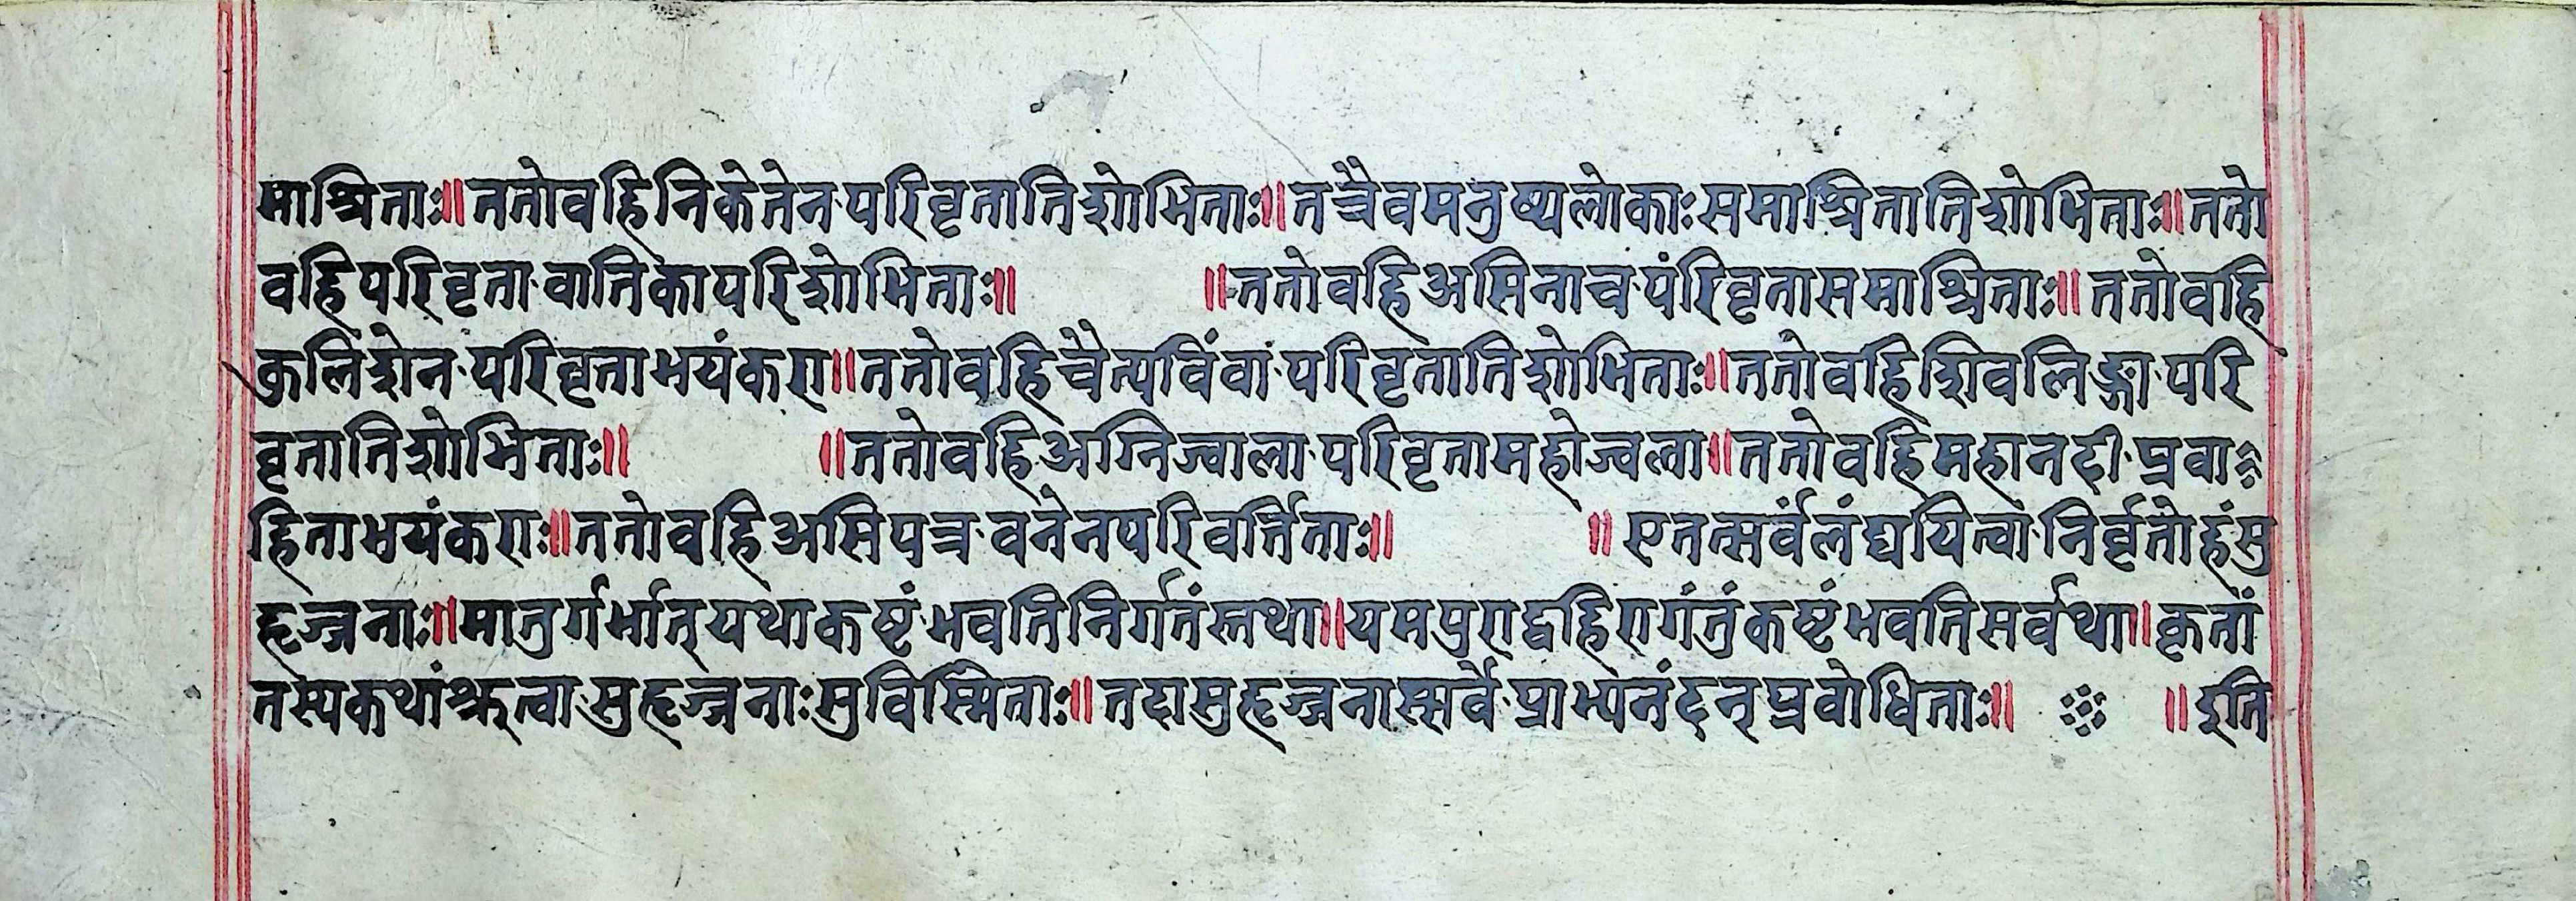 माश्रिताः॥ततोवहिनिकेतेनपरिवृतातिशोभिताः॥तत्रैवमनुष्यलोकाःसमाश्रितातिशोभिताः॥ततो
वहिपरिवृतावातिकापरिशोभिताः॥ ॥ततोवहिअसिनाचपंरिवृतासमाश्रिताः॥ततोवहि
कुलिशेनपरिवृताभयंकरा॥ततोवहिचैत्यविंवांपरिवृतातिशोभिताः॥ततोवहिशिवलिङ्गापरि
वृतातिशोभिताः॥ ॥ततोवहिअग्निज्वालापरिवृतामहोज्वला॥ततोवहिमहानदीप्रवा
हिताभयंकराः॥ततोवहिअसिपत्रवनेनपरिवर्त्तिताः॥ ॥एतत्सर्वंलंघयित्वानिर्वृतोहंसु
हृज्जनाः॥मातुर्गर्भात्यथाकष्टंभवतिनिर्गतंस्तथा॥यमपुराद्वहिरागंतुंकष्टंभवतिसर्वथा॥कृतां
तस्यकथांश्रुत्वासुहृज्जनाःसुविस्मिताः॥तदासुहृज्जनास्सर्वेप्राभ्यनंदन्प्रवोधिताः॥ ॥इति